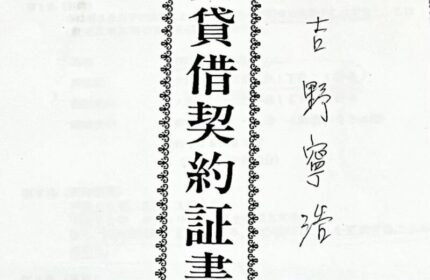 吉野寧浩
貸借契約証書